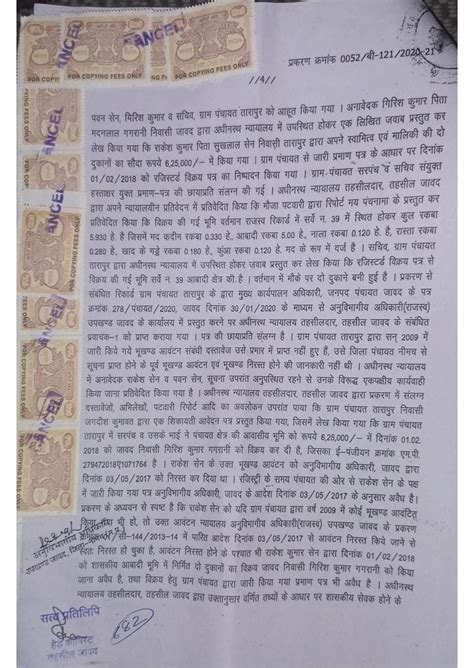 प्रकरण क्रमांक 0052/बी-121/2020-21
//4//
पवन सेन, गिरिश कुमार व सचिव, ग्राम पंचायत तारापुर को आहूत किया गया । अनावेदक गिरिश कुमार पिता
मदनलाल गगरानी निवासी जावद द्वारा अधीनस्थ न्यायालय में उपस्थित होकर एक लिखित जवाब प्रस्तुत कर
लेख किया गया कि राकेश कुमार पिता सुखलाल सेन निवासी तारापुर द्वारा अपने स्वामित्व एवं मालिकी की दो
दुकानों का सौदा रूपये 6,25,000/- में किया गया । ग्राम पंचायत से जारी प्रमाण पत्र के आधार पर दिनांक
01/02/2018 को रजिस्टर्ड विक्रय पत्र का निष्पादन किया गया । ग्राम पंचायत सरपंच व सचिव संयुक्त
हस्ताक्षर युक्त प्रमाण-पत्र की छायाप्रति संलग्न की गई । अधीनस्थ न्यायालय तहसीलदार, तहसील जावद
द्वारा अपने न्यायालयीन प्रतिवेदन में प्रतिवेदित किया कि मौजा पटवारी द्वारा रिपोर्ट मय पंचनामा के प्रस्तुत कर
प्रतिवेदित किया कि विक्रय की गई भूमि वर्तमान राजस्व रिकार्ड में सर्वे न. 39 में स्थित होकर कुल रकबा
5.930 हे. है जिसमें मद कदीम रकबा 0.330 हे., आबादी रकबा 5.00 हे., नाला रकबा 0.120 हे, रास्ता रकबा
0.280 हे., खाद के गड्डे रकबा 0.180 हे., कुंआ रकबा 0.120 हे. मद के रूप में दर्ज है । सचिव, ग्राम पंचायत
तारापुर द्वारा अधीनस्थ न्यायालय में उपस्थित होकर जवाब प्रस्तुत कर लेख किया कि रजिस्टर्ड विक्रय पत्र से
विक्रय की गई भूमि सर्वे न. 39 आबादी क्षेत्र की है । वर्तमान में मौके पर दो दुकाने बनी हुई है । प्रकरण से
संबंधित रिकार्ड ग्राम पंचायत तारापुर के द्वारा मुख्य कार्यपालन अधिकारी, जनपद पंचायत जावद के पत्र
क्रमांक 278/पंचायत/2020, जावद दिनांक 30/01/2020 के माध्यम से अनुविभागीय अधिकारी(राजस्व)
उपखण्ड जावद के कार्यालय में प्रस्तुत करने पर अधीनस्थ न्यायालय तहसीलदार, तहसील जावद के संबंधित
प्रवाचक-1 को प्राप्त कराया गया । पत्र की छायाप्रति संलग्न है । ग्राम पंचायत तारापुर द्वारा सन् 2009 में
जारी किये गये भूखण्ड आवंटन संबंधी दस्तावेज उसे प्रभार में प्राप्त नहीं हुए हैं, उसे जिला पंचायत नीमच से
सूचना प्राप्त होने के पूर्व भूखण्ड आवंटन एवं भूखण्ड निरस्त होने की जानकारी नही थी । अधीनस्थ न्यायालय
में अनावेदक राकेश सेन व पवन सेन, सूचना उपरांत अनुपस्थित रहने से उनके विरूद्ध एकपक्षीय कार्यवाही
किया जाना प्रतिवेदित किया गया है । अधीनस्थ न्यायालय तहसीलदार, तहसील जावद द्वारा प्रकरण में संलग्न
दस्तावेजो, अभिलेखों, पटवारी रिपोर्ट आदि का अवलोकन उपरांत पाया कि ग्राम पंचायत तारापुर निवासी
जगदीश कुमावत द्वारा एक शिकायती आवेदन पत्र प्रस्तुत किया गया, जिसमें लेख किया गया कि ग्राम पंचायत
तारापुर में सरपंच व उसके भाई ने पंचायत क्षेत्र की आवासीय भूमि को रूपये 6,25,000/- में दिनांक 01.02.
2018 को जावद निवासी गिरिश कुमार गगरानी को विक्रय कर दी है, जिसका ई-पंजीयन क्रमांक एम.पी.
279472018ए1071764 है । राकेश सेन के उक्त भूखण्ड आवंटन को अनुविभागीय अधिकारी, जावद द्वारा
दिनांक 03/05/2017 को निरस्त कर दिया था । रजिस्ट्री के समय पंचायत की ओर से राकेश सेन के पक्ष
में जारी किया गया पत्र अनुविभागीय अधिकारी, जावद के आदेश दिनांक 03/05/2017 के अनुसार अवैध है।
प्रकरण के अध्ययन से स्पष्ट है कि राकेश सेन को यदि ग्राम पंचायत द्वारा वर्ष 2009 में कोई भूखण्ड आवंटित
किया भी हो, तो उक्त आवंटन न्यायालय अनुविभागीय अधिकारी(राजस्व) उपखण्ड जावद के प्रकरण
सी-144/2013-14 में पारित आदेश दिनांक 03/05/2017 से आवंटन निरस्त किये जाने से
स्वतः निरस्त हो चुका है, आवंटन निरस्त होने के पश्चात भी राकेश कुमार सेन द्वारा दिनांक 01/02/2018
को शासकीय आबादी भूमि में निर्मित दो दुकानों का विक्रय जावद निवासी गिरिश कुमार गगरानी को किया
जाना अवैध है, तथा विक्रय हेतु ग्राम पंचायत द्वारा जारी किया गया प्रमाण पत्र भी अवैध है । अधीनस्थ
न्यायालय तहसीलदार, तहसील जावद द्वारा उक्तानुसार वर्णित तथ्यों के आधार पर शासकीय सेवक होने के
अनुविभागीय अधिकारी
उपखण्ड जावद, जिला-नीमच (म.प्र.)
सत्य प्रतिलिपि
682
हेड कॉपिस्ट
तहसील जावद
FOR COPYING FEES ONLY
CANCEL